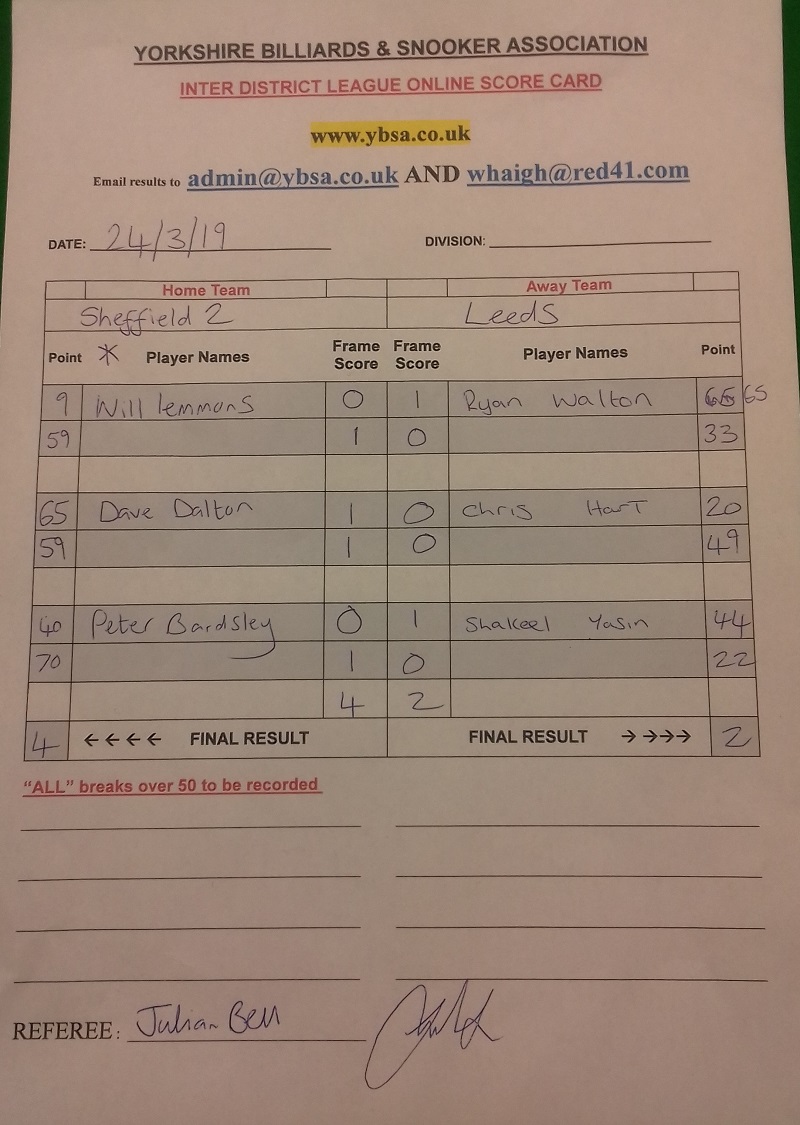 YORKSHIRE BILLIARDS & SNOOKER ASSOCIATION
INTER DISTRICT LEAGUE ONLINE SCORE CARD
www.ybsa.co.uk
Email results to admin@ybsa.co.uk AND whaigh@red41.com
DATE: 24/3/19 DIVISION:
Home Team Away Team
Sheffield 2 Leeds
Point * Player Names Frame Score Frame Score Player Names Point
9 Will lemmons 0 1 Ryan Walton 65
59 1 0 33
65 Dave Dalton 1 0 Chris Hart 20
59 1 0 49
40 Peter Bardsley 0 1 Shakeel Yasin 44
70 1 0 22
4 2
4 ←←←← FINAL RESULT FINAL RESULT →→→→ 2
"ALL" breaks over 50 to be recorded
REFEREE: Julian Bell